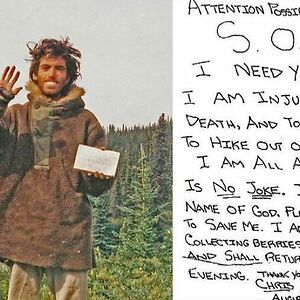 ATTENTION POSSI
S.O
I NEED Y
I AM INJU
DEATH, AND TO
TO HIKE OUT O
I AM ALL A
IS NO JOKE. I
NAME OF GOD, PL
TO SAVE ME. I A
COLLECTING BERRIES
AND SHALL RETUR
EVENING. THANK Y
CHRIS
AUGU